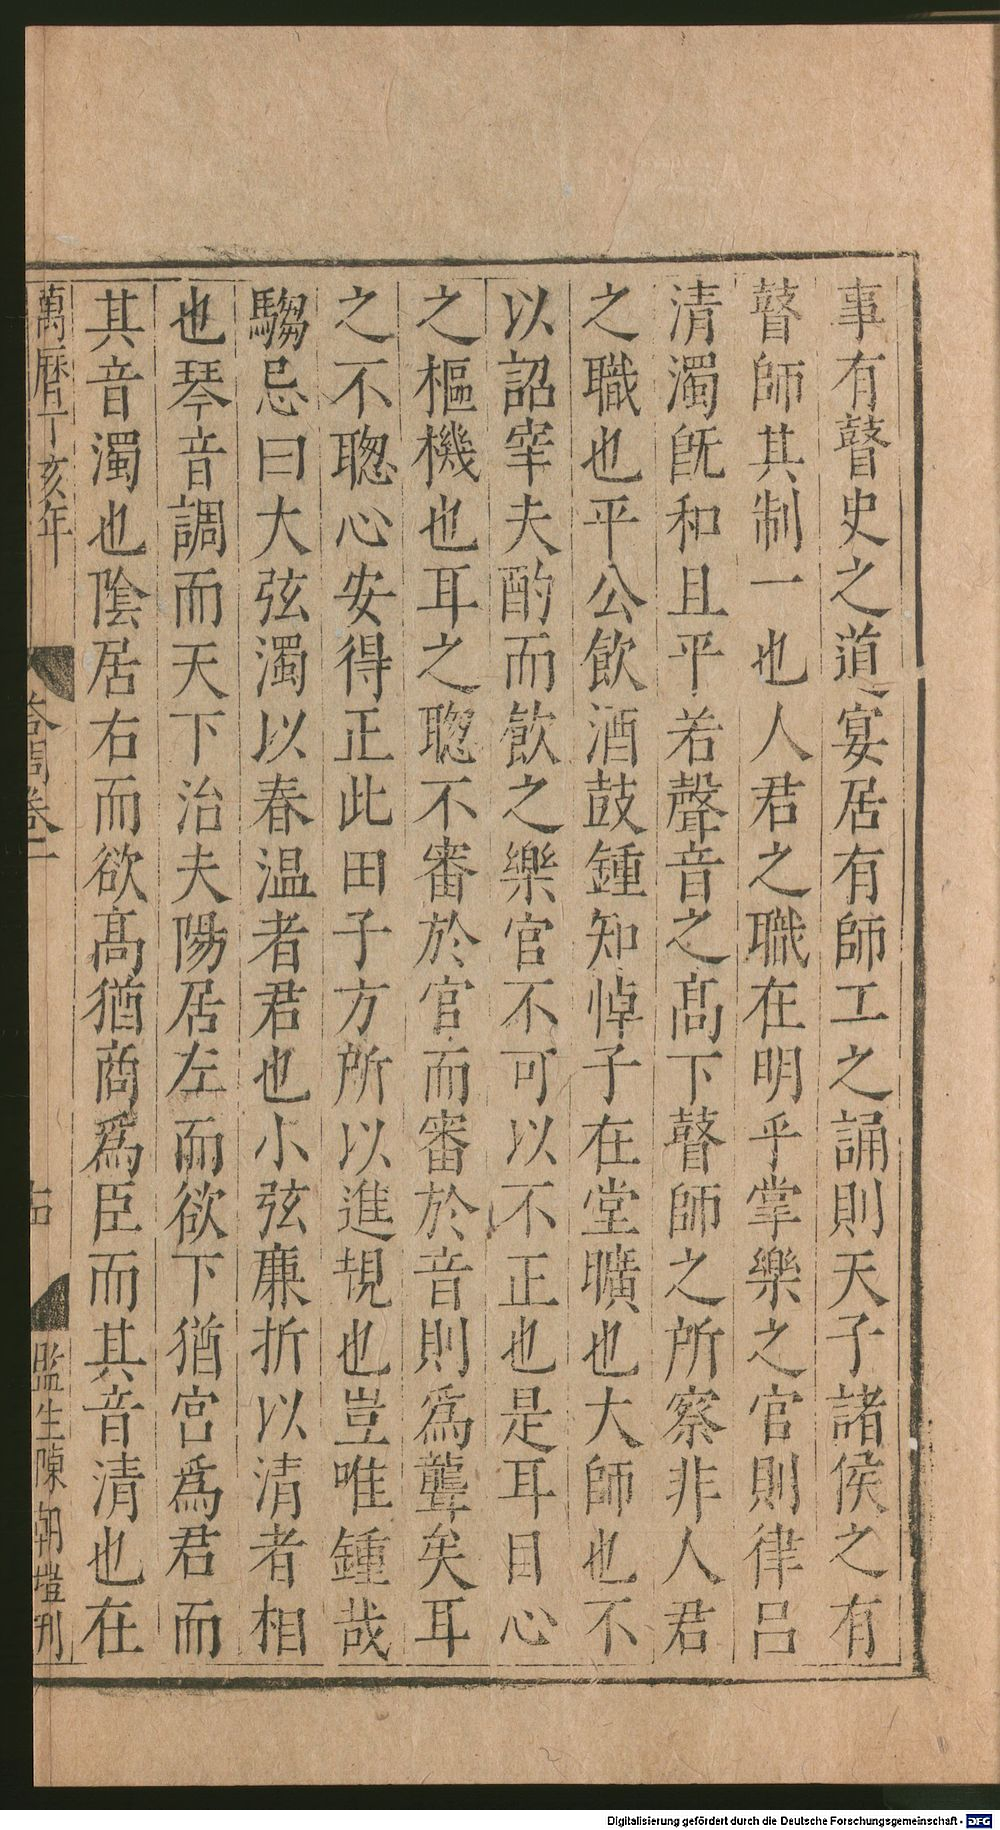 事有瞽史之道宴居有師工之誦則天子諸侯之有
瞽師其制一也人君之職在明乎掌樂之官則律呂
清濁旣和且平若聲音之髙下瞽師之所察非人君
之職也平公飲酒鼓鍾知悼子在堂曠也大師也不
以詔宰夫酌而飲之樂官不可以不正也是耳目心
之樞機也耳之聦不審於官而審於音則爲聾矣耳
之不聦心安得正此田子方所以進䂓也豈唯鍾哉
騶忌曰大弦濁以春温者君也小弦亷折以清者相
也琴音調而天下治夫陽居左而欲下猶宮爲君而
其音濁也隂居右而欲髙猶商爲臣而其音清也在
萬曆丁亥年 卷二 監生陳朝塏刊
Digitalisierung gefördert durch die Deutsche Forschungsgemeinschaft - DFG